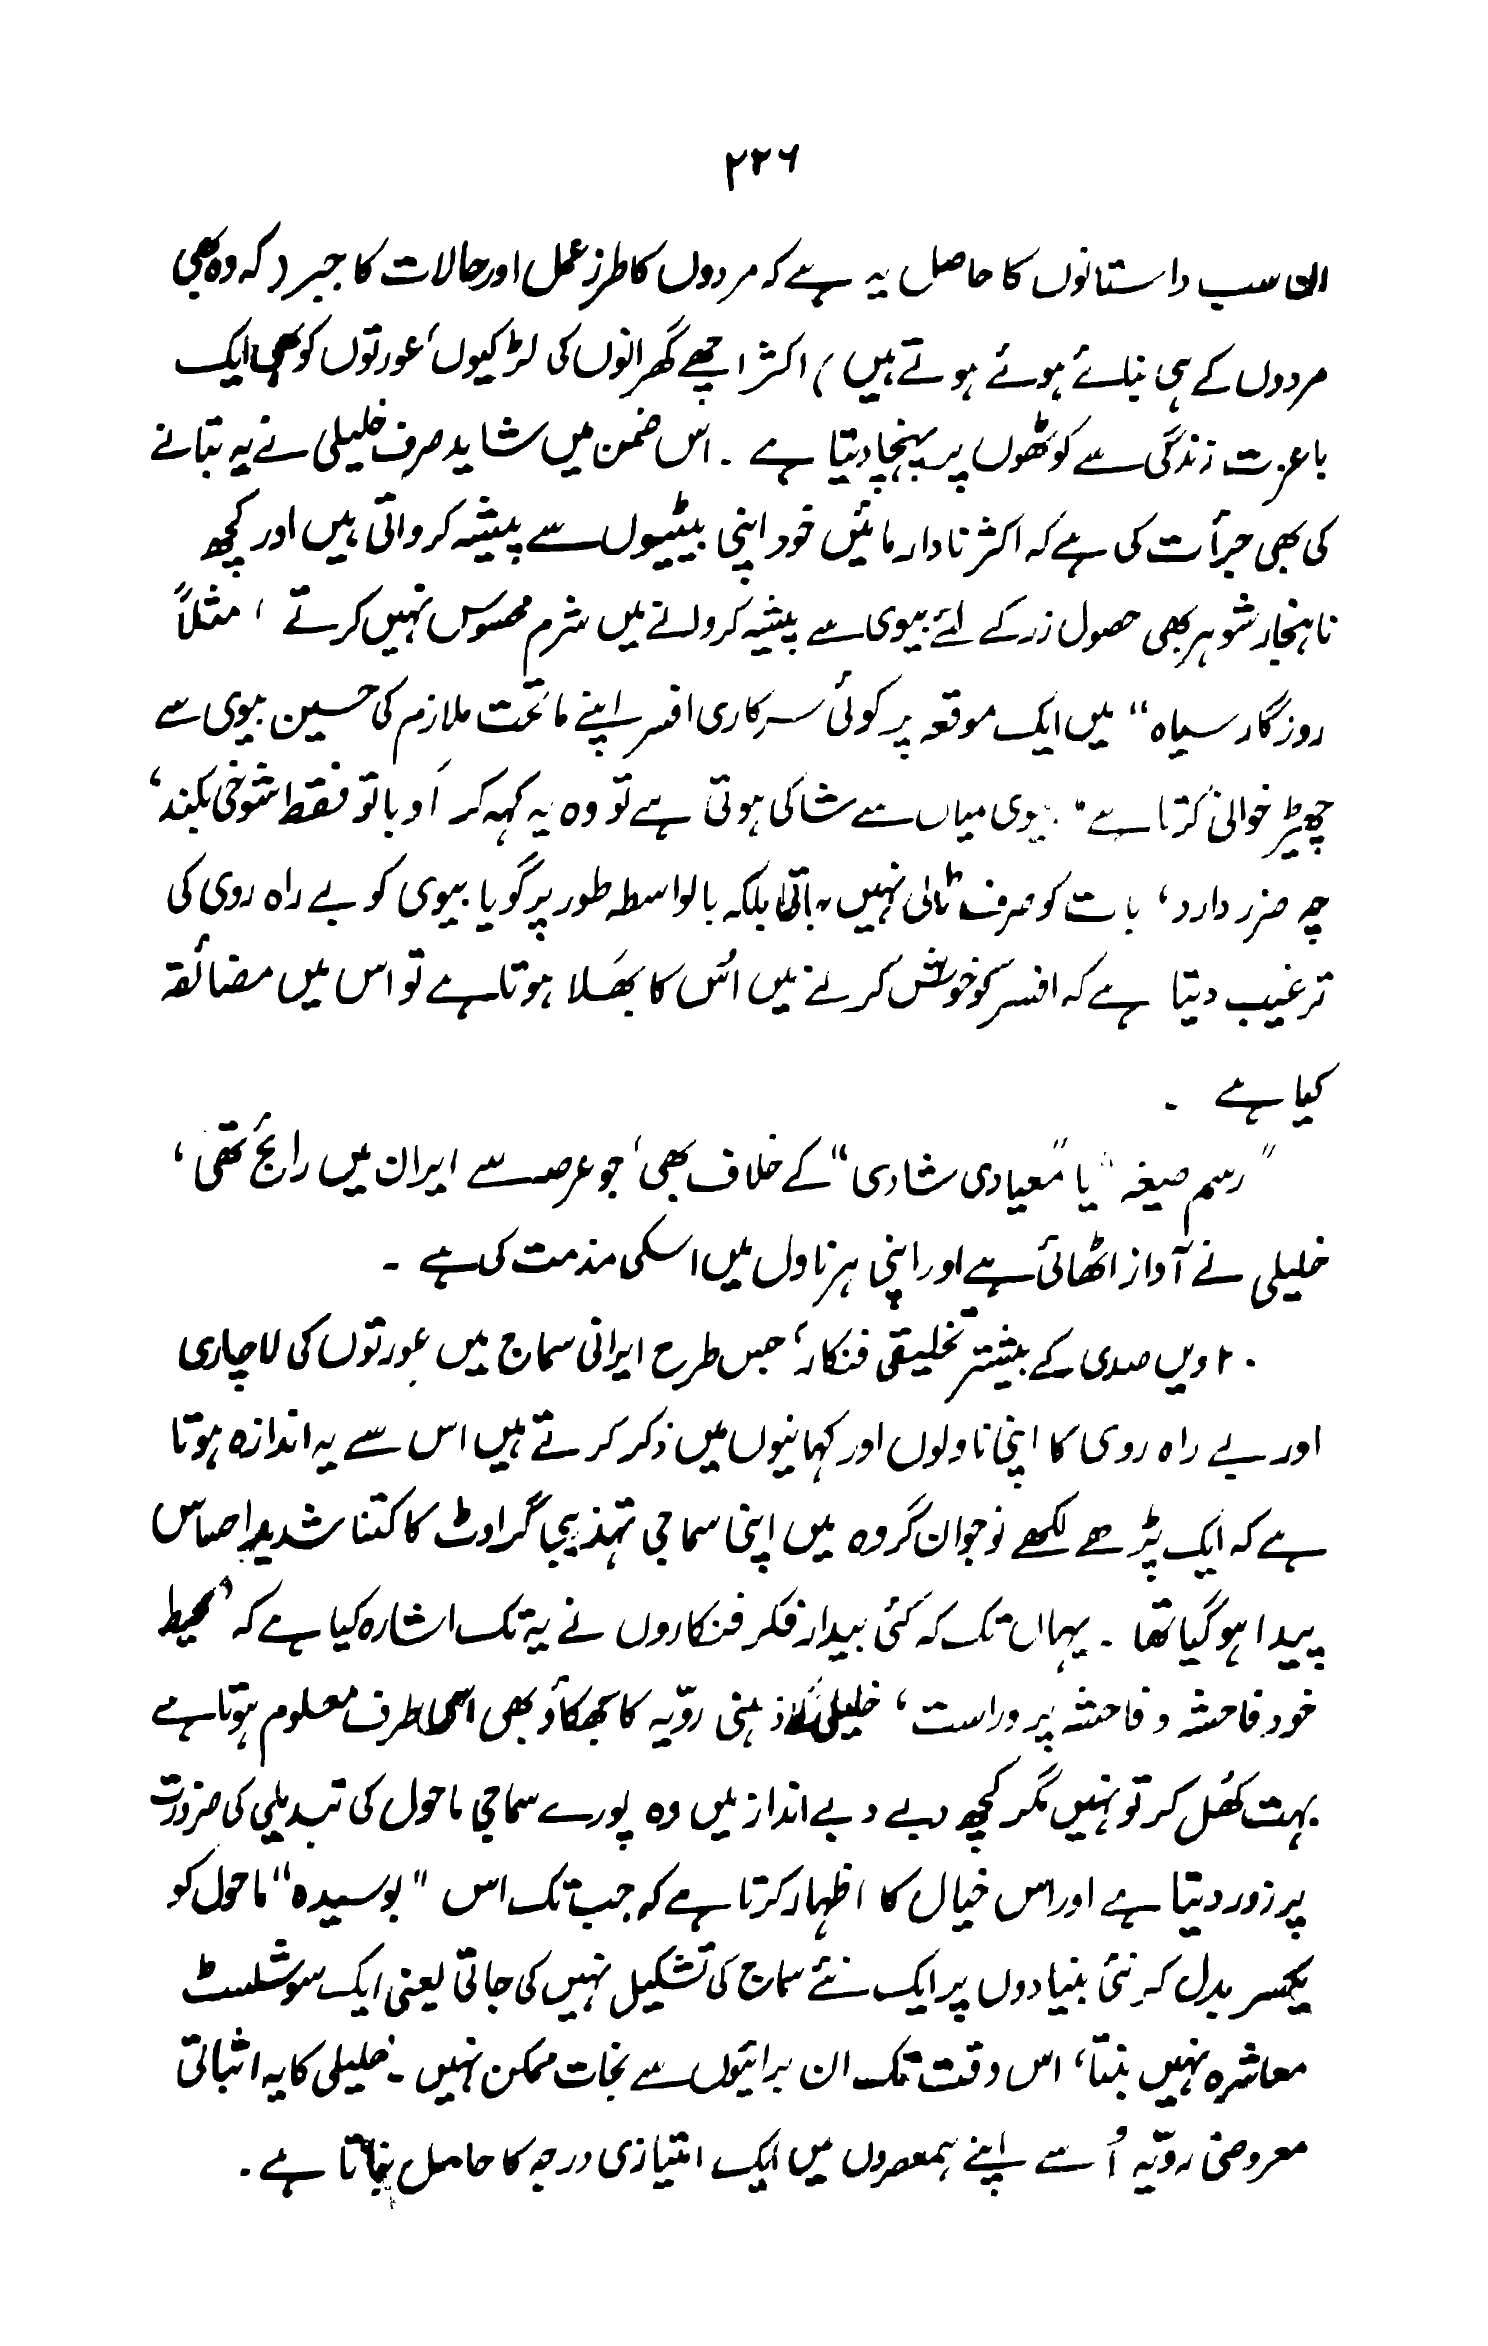 ۲۲۶
ان سب داستانوں کا حاصل یہ ہے کہ مردوں کا طرز عمل اور حالات کا جبر (کہ وہ بھی
مردوں کے ہی بنائے ہوئے ہوتے ہیں) اکثر اچھے گھرانوں کی لڑکیوں، عورتوں کو بھی ایک
باعزت زندگی سے کوٹھوں پر پہنچا دیتا ہے ۔ اس ضمن میں شاید صرف خلیلی نے یہ بتانے
کی بھی جرأت کی ہے کہ اکثر نادار مائیں خود اپنی بیٹیوں سے پیشہ کرواتی ہیں اور کچھ
ناہنجار شوہر بھی حصول زر کے لئے بیوی سے پیشہ کروانے میں شرم محسوس نہیں کرتے، مثلاً
روزگار سیاہ" میں ایک موقعہ پر کوئی سرکاری افسر اپنے ماتحت ملازم کی حسین بیوی سے
چھیڑ خوانی کرتا ہے۔ بیوی میاں سے شاکی ہوتی ہے تو وہ یہ کہہ کر اَو باتو فقط شوخی بکند،
چہ ضرر دارد، بات کو صرف ٹالتا ہی نہیں بلکہ بالواسطہ طور پر گویا بیوی کو بے راہ روی کی
ترغیب دیتا ہے کہ افسر کو خوش کرنے میں اُس کا بھَلا ہوتا ہے تو اس میں مضائقہ
کیا ہے ۔
"رسم صیغہ" یا "معیادی شادی" کے خلاف بھی، جو عرصہ سے ایران میں رائج تھی،
خلیلی نے آواز اٹھائی ہے اور اپنی ہر ناول میں اسکی مذمت کی ہے ۔
۲۰ ویں صدی کے بیشتر تخلیقی فنکار، جس طرح ایرانی سماج میں عورتوں کی لاچاری
اور بے راہ روی کا اپنی ناولوں اور کہانیوں میں ذکر کرتے ہیں اس سے یہ اندازہ ہوتا
ہے کہ ایک پڑھے لکھے نوجوان گروہ میں اپنی سماجی تہذیبی گراوٹ کا کتنا شدید احساس
پیدا ہو گیا تھا ۔ یہاں تک کہ کئی بیدار فکر فنکاروں نے یہ تک اشارہ کیا ہے کہ 'محیط
خود فاحشہ و فاحشہ پرور است، خلیلی کا ذہنی رویّہ کا جھکاؤ بھی اسی طرف معلوم ہوتا ہے
بہت کھُل کر تو نہیں مگر کچھ دبے دبے انداز میں وہ پورے سماجی ماحول کی تبدیلی کی ضرورت
پر زور دیتا ہے اور اس خیال کا اظہار کرتا ہے کہ جب تک اس "بوسیدہ" ماحول کو
یکسر بدل کر نئی بنیادوں پر ایک نئے سماج کی تشکیل نہیں کی جاتی یعنی ایک سوشلسٹ
معاشرہ نہیں بنتا، اس وقت تک ان برائیوں سے نجات ممکن نہیں ۔ خلیلی کا یہ اثباتی
معروضی رویّہ اُسے اپنے ہمعصروں میں ایک امتیازی درجہ کا حامل بناتا ہے ۔